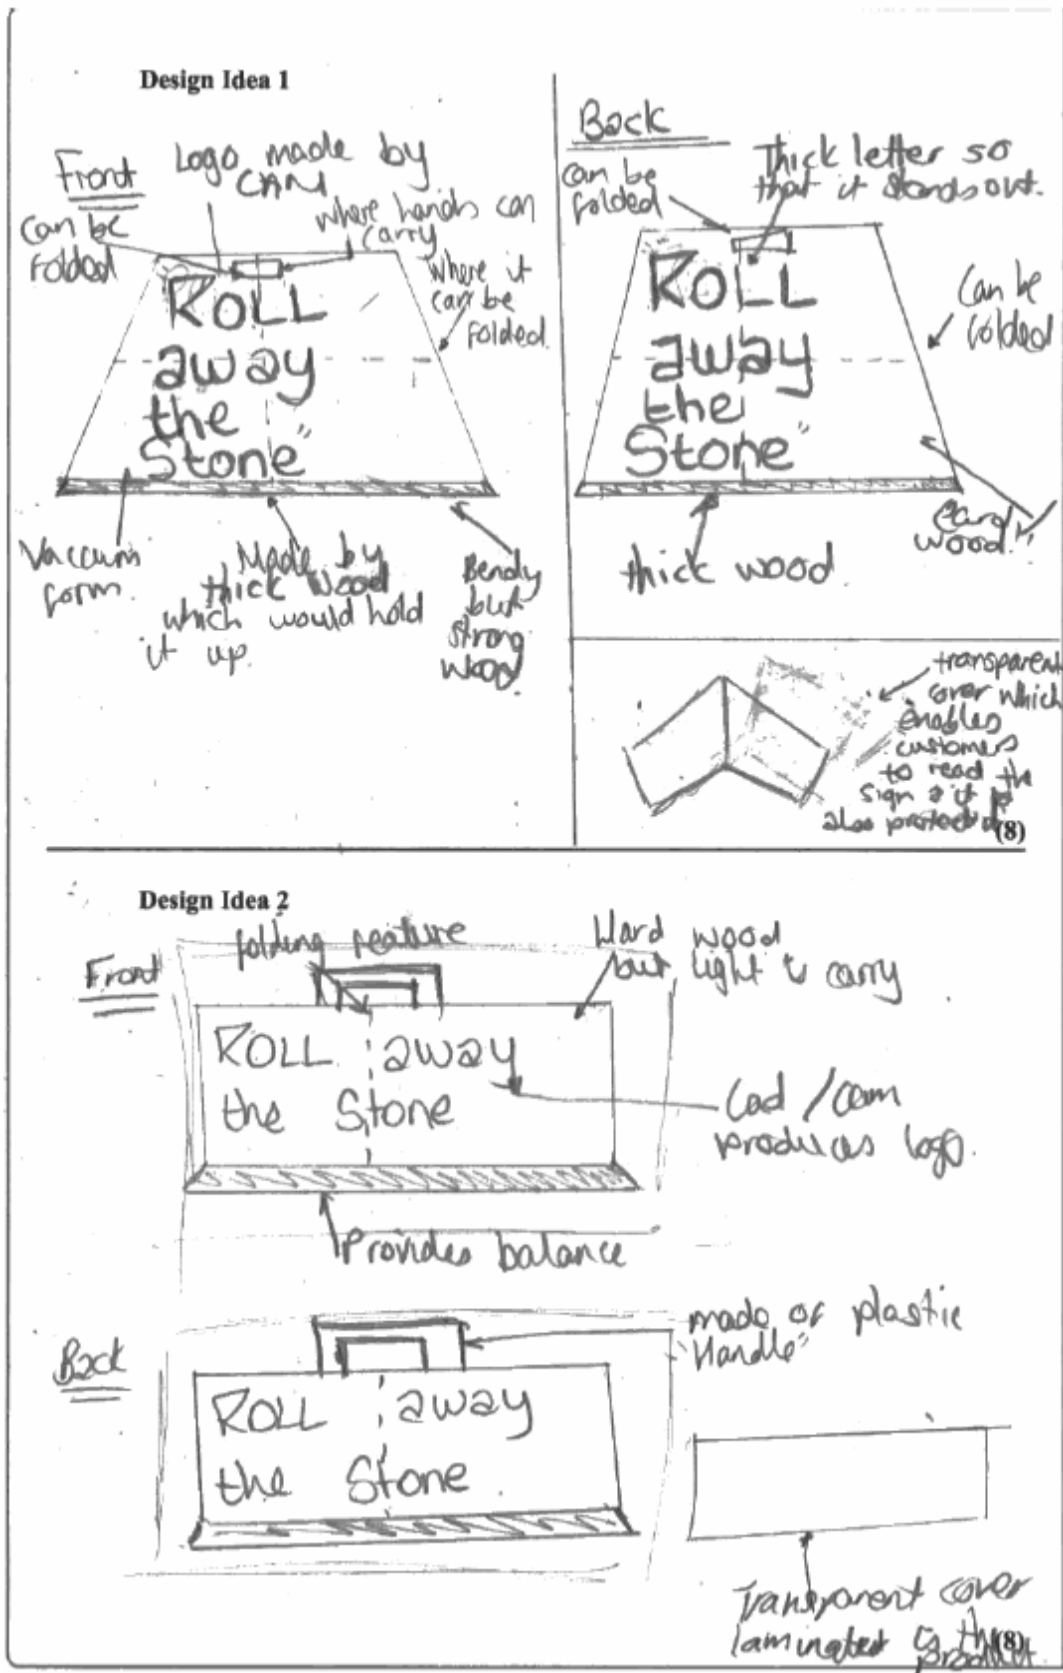 Design Idea 1
Front
Logo made by
CAM
can be
folded
where hands can
carry
where it
can be
folded.
ROLL
away
the
Stone"
Vaccum
form.
Made by
thick wood
which would hold
it up.
Bendy
but
strong
wood.
Back
can be
folded
Thick letter so
that it stands out.
ROLL
away
the
Stone"
Can be
folded
thick wood.
wood."
transparent
cover which
enables
customers
to read the
sign & it
also protected
(8)
Design Idea 2
Front
folding feature
Hard wood
but light to carry
ROLL away
the Stone
Cad / Cam
produces logo.
Provides balance
Back
made of plastic
"Handle"
ROLL away
the Stone.
Transparent cover
laminated to the
product.
(8)